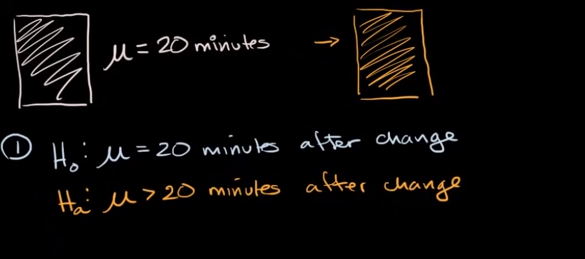 μ = 20 minutes →
① H₀: μ = 20 minutes after change
Hₐ: μ > 20 minutes after change